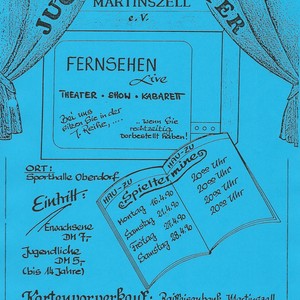 MARTINSZELL
e.V.
FERNSEHEN
Live
THEATER - SHOW - KABARETT
Bei uns
sitzen Sie in der
1. Reihe, ....
... wenn Sie
rechtzeitig
vorbestellt haben!
HAU-ZU HAU-ZU
Spieltermine
Montag 16.4.90 20.00 Uhr
Samstag 21.4.90 20.00 Uhr
Freitag 27.4.90 20.00 Uhr
Samstag 28.4.90 20.00 Uhr
ORT:
Sporthalle Oberdorf
Eintritt:
Erwachsene
DM 7,-
Jugendliche
DM 5,-
(bis 14 Jahre)
Kartenvorverkauf: Raiffeisenbank Martinszell